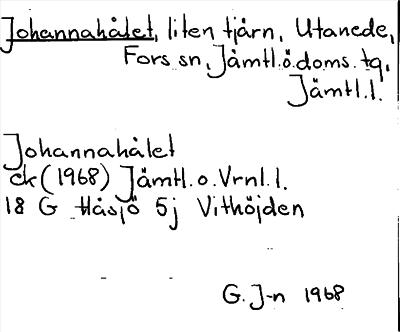 Johannahålet, liten tjärn, Utanede,
Fors sn, Jämtl.ö.doms.tg,
Jämtl.l.
Johannahålet
ek (1968) Jämtl.o.Vrnl.l.
18 G Håsjö 5j Vithöjden
G.J-n 1968